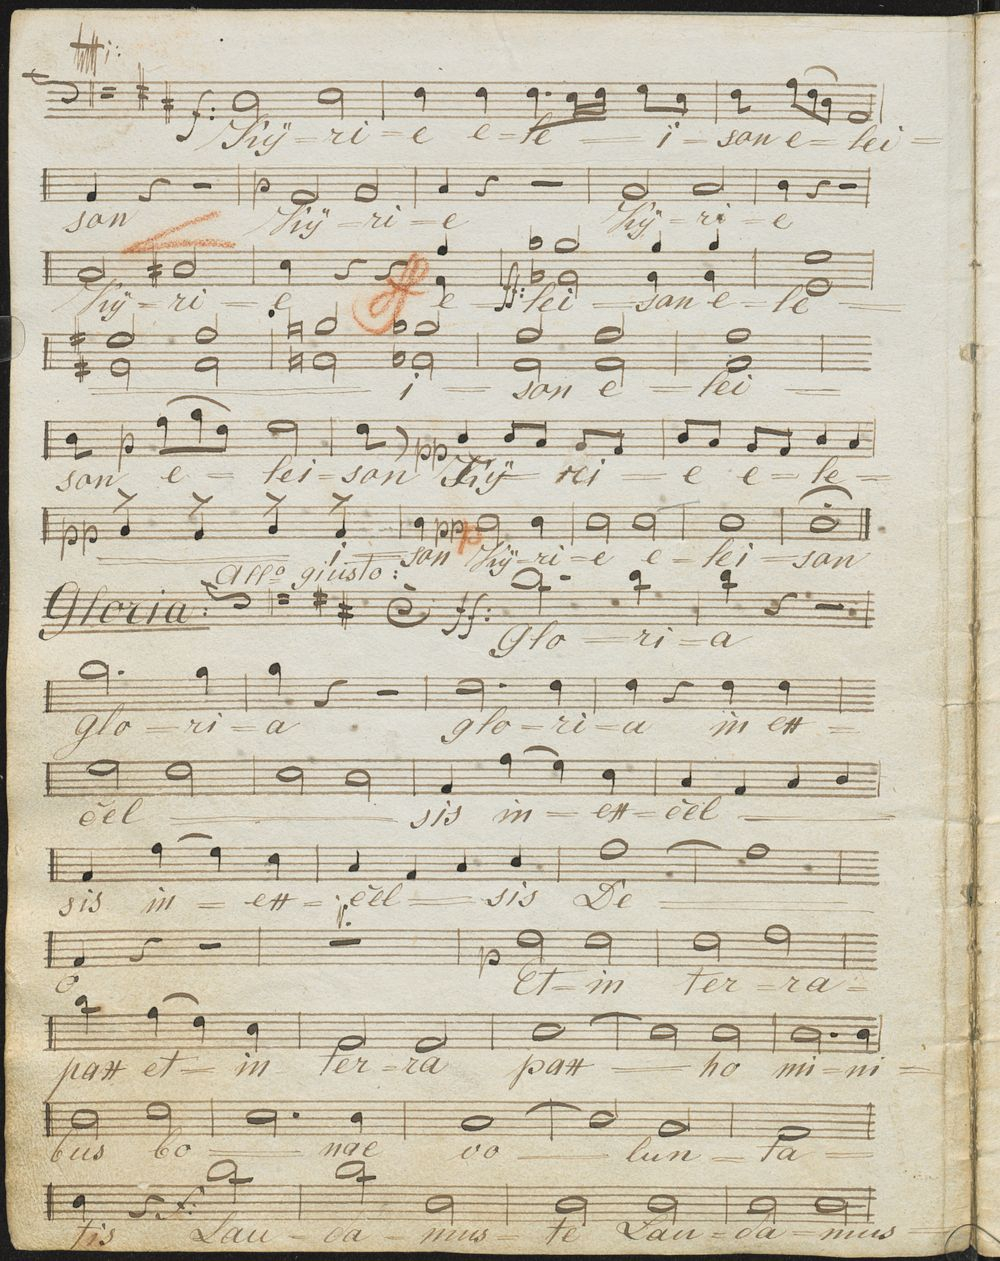 f: Kÿ - ri - e e - le - i - son e - lei -
son p Kÿ - ri - e Kÿ - ri - e
Kÿ - ri - e e - ff: lei - son e - le -
i - son e - lei -
son p e - lei - son pp Kÿ - rei - e e - le -
pp i - son pp p Kÿ - ri - e e - lei - son
Allo giusto:
Gloria: ff: Glo - ri - a
glo - ri - a glo - ri - a in ex -
cel - sis in - ex - cel -
sis in - ex - cel - sis De -
o p Et - in ter - ra -
pax et - in ter - ra pax - ho mi - ni -
bus bo - nae vo - lun - ta -
tis f: Lau - da - mus - te Lau - da - mus -